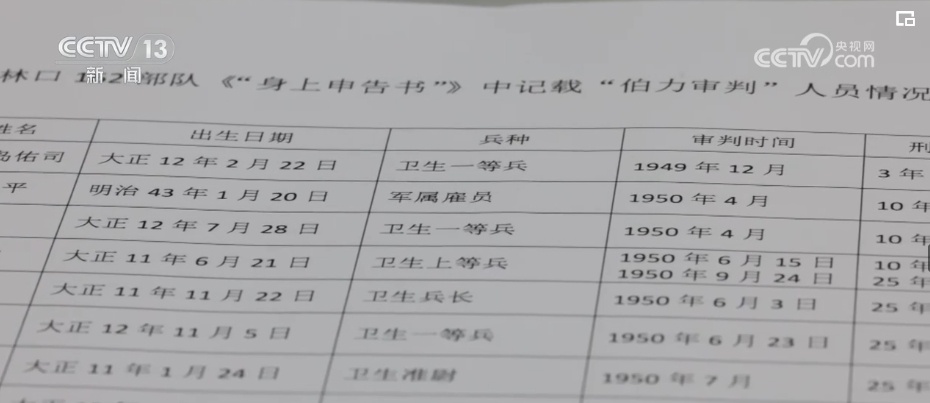 CCTV 13
新闻
CCTV 央视网
com
林口 162 部队《“身上申告书”》中记载“伯力审判”人员情况
姓名 出生日期 兵种 审判时间 刑
佑司 大正 12 年 2 月 22 日 卫生一等兵 1949 年 12 月 3 年
平 明治 43 年 1 月 20 日 军属雇员 1950 年 4 月 10 年
大正 12 年 7 月 28 日 卫生一等兵 1950 年 4 月 10 年
大正 11 年 6 月 21 日 卫生上等兵 1950 年 6 月 15 日 10 年
1950 年 9 月 24 日 25 年
大正 11 年 11 月 22 日 卫生兵长 1950 年 6 月 3 日 25 年
大正 12 年 11 月 5 日 卫生一等兵 1950 年 6 月 23 日 25 年
大正 11 年 1 月 24 日 卫生准尉 1950 年 7 月 25 年